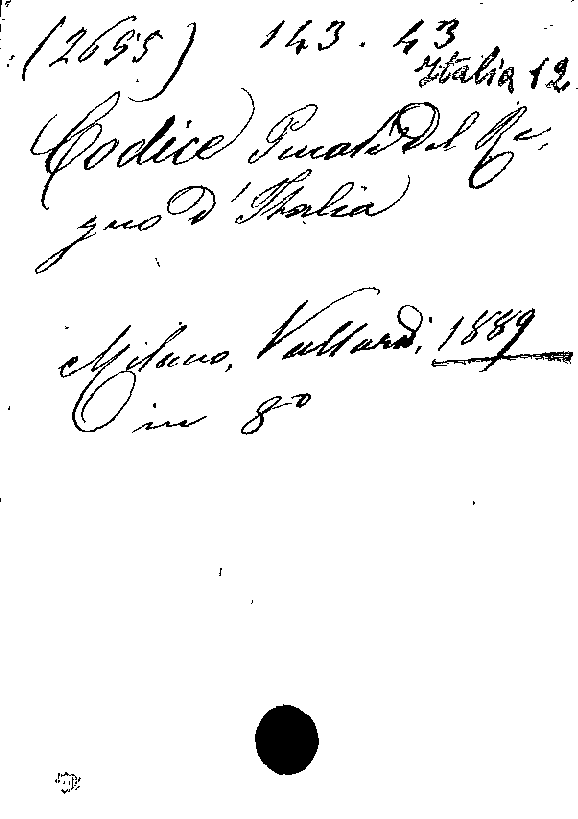 (2655) 143. 43
Italia 12
Codice Penale Del Re-
gno d'Italia
Milano, Vallardi, 1889
in 8º